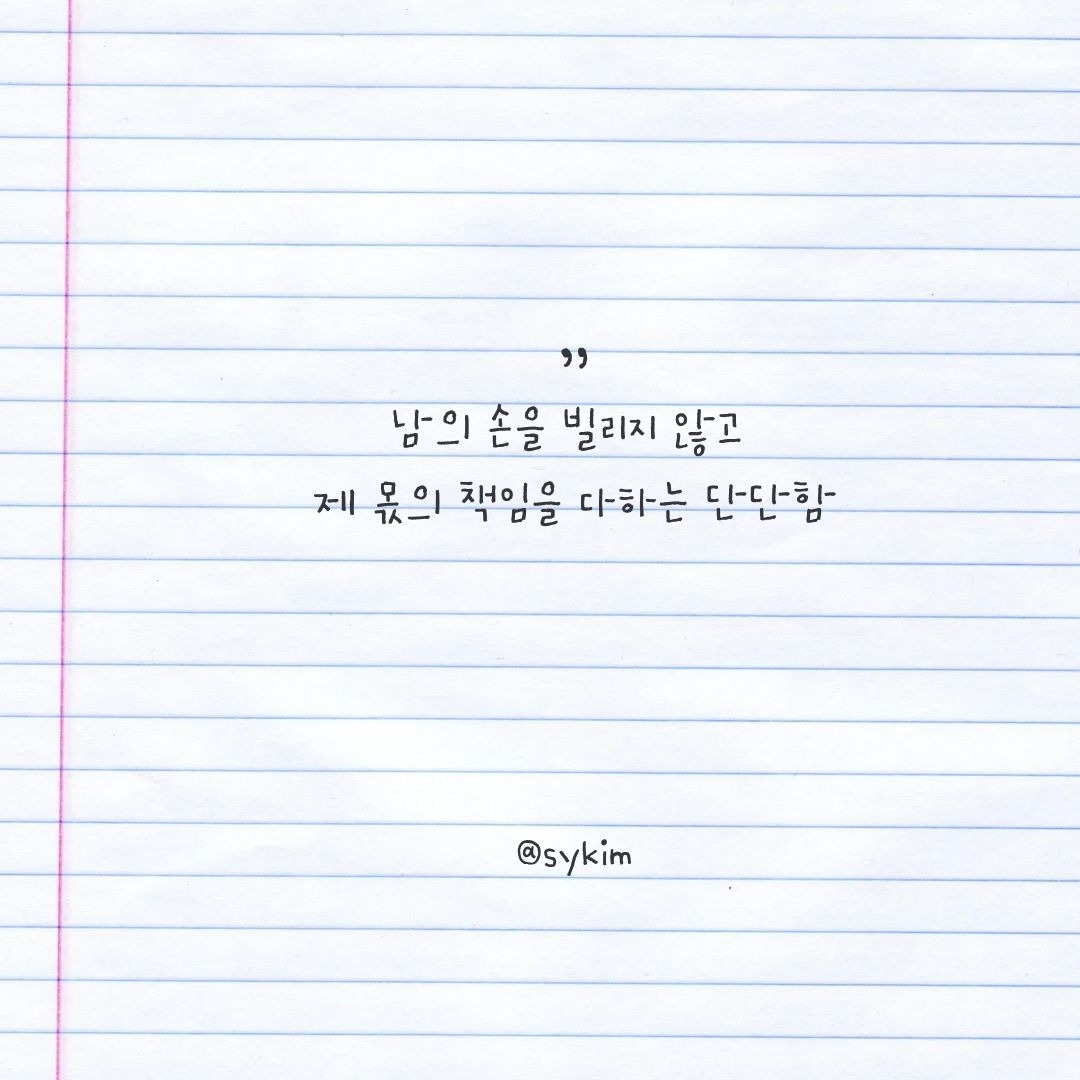 ”
남의 손을 빌리지 않고
제 몫의 책임을 다하는 단단함
@sykim